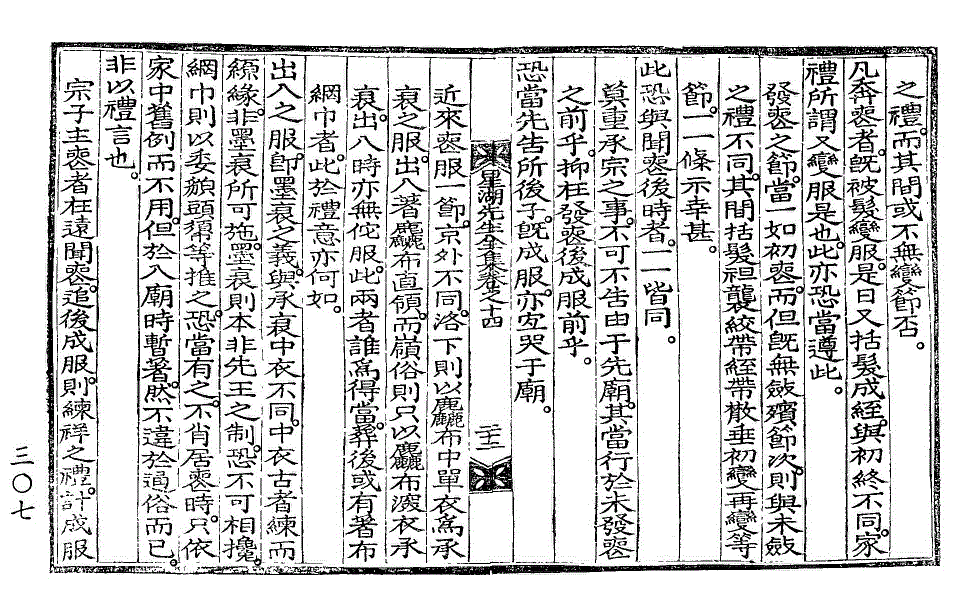 之禮。而其間或不無變節否。
凡奔喪者。旣被髮變服。是日又括髮成絰。與初終不同。家
禮所謂又變服是也。此亦恐當遵此。
發喪之節。當一如初喪。而但旣無斂殯節次。則與未斂
之禮不同。其間括髮袒襲絞帶絰帶散垂初變再變等
節。一一條示幸甚。
此恐與聞喪後時者。一一皆同。
奠重承宗之事。不可不告由于先廟。其當行於未發喪
之前乎。抑在發喪後成服前乎。
恐當先告所後子。旣成服。亦宜哭于廟。
星湖先生全集卷之十四
二十二
近來喪服一節。京外不同。洛下則以麤布中單衣爲承
衰之服。出入著麤布直領。而嶺俗則只以麤布深衣承
衰。出入時亦無佗服。此兩者誰爲得當。葬後或有著布
網巾者。此於禮意亦何如。
出入之服。卽墨衰之義。與承衰中衣不同。中衣古者練而
縓緣。非墨衰所可拖。墨衰則本非先王之制。恐不可相攙。
網巾則以委貌頭𢄼等推之。恐當有之。不肖居喪時。只依
家中舊例而不用。但於入廟時暫著。然不違於通俗而已。
非以禮言也。
宗子主喪者在遠聞喪。追後成服。則練祥之禮。計成服
三〇七